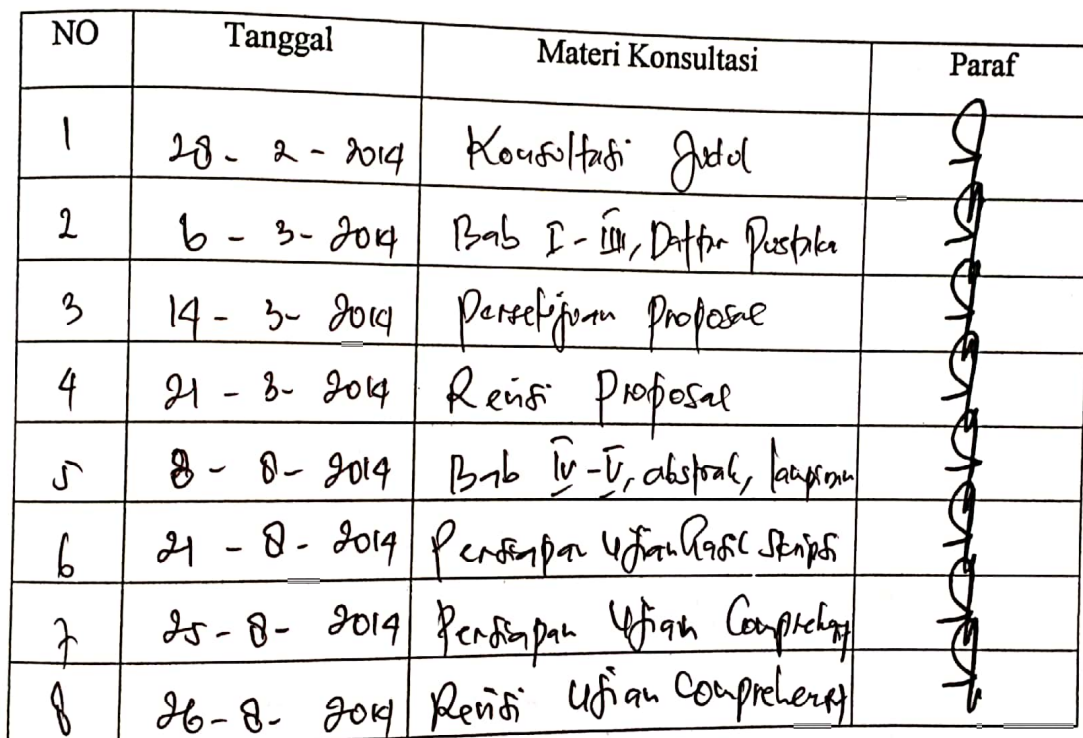 NO Tanggal Materi Konsultasi Paraf
1 28 - 2 - 2014 Konsultasi Judul
2 6 - 3 - 2014 Bab I - III, Daftar Pustaka
3 14 - 3 - 2014 Persetujuan Proposal
4 21 - 3 - 2014 Revisi Proposal
5 8 - 8 - 2014 Bab IV - V, abstrak, lampiran
6 21 - 8 - 2014 Persiapan Ujian Hasil Skripsi
7 25 - 8 - 2014 Persiapan Ujian Comprehensif
8 26 - 8 - 2014 Revisi Ujian Comprehensif